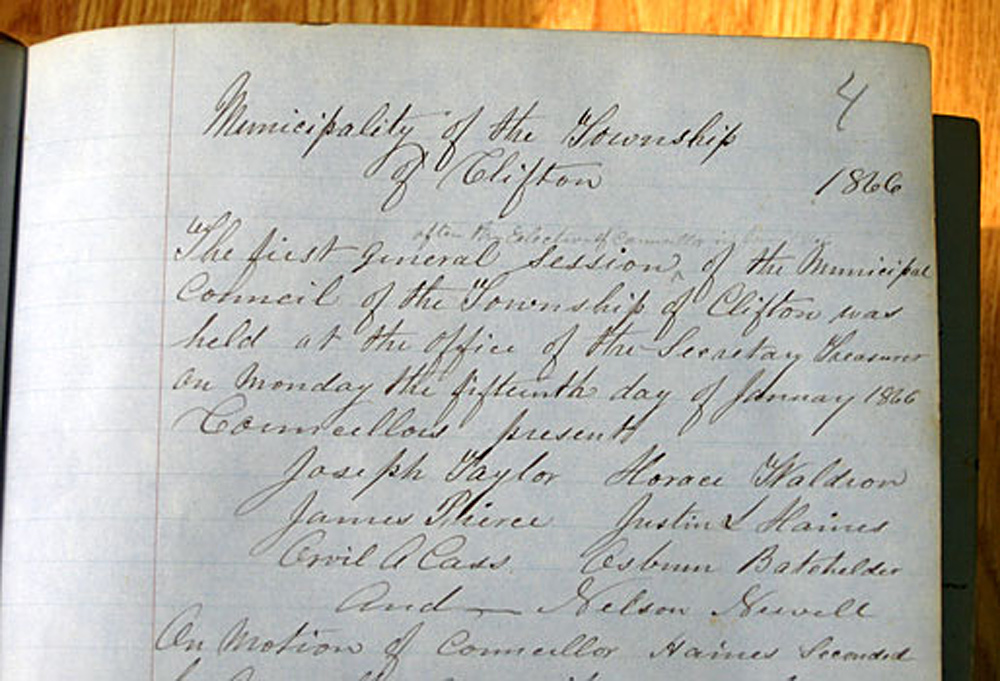 4
Municipality of the Township
of Clifton 1866
after the Election of Councillor
The first general session ^ of the Municipal
Council of the Township of Clifton was
held at the office of the Secretary Treasurer
on Monday the fifteenth day of January 1866
Councillors present
Joseph Taylor Horace Waldron
James Pierce Justin L Haines
Orvil A Cass Osborn Batchelder
And Nelson Newell
On Motion of Councillor Haines Seconded